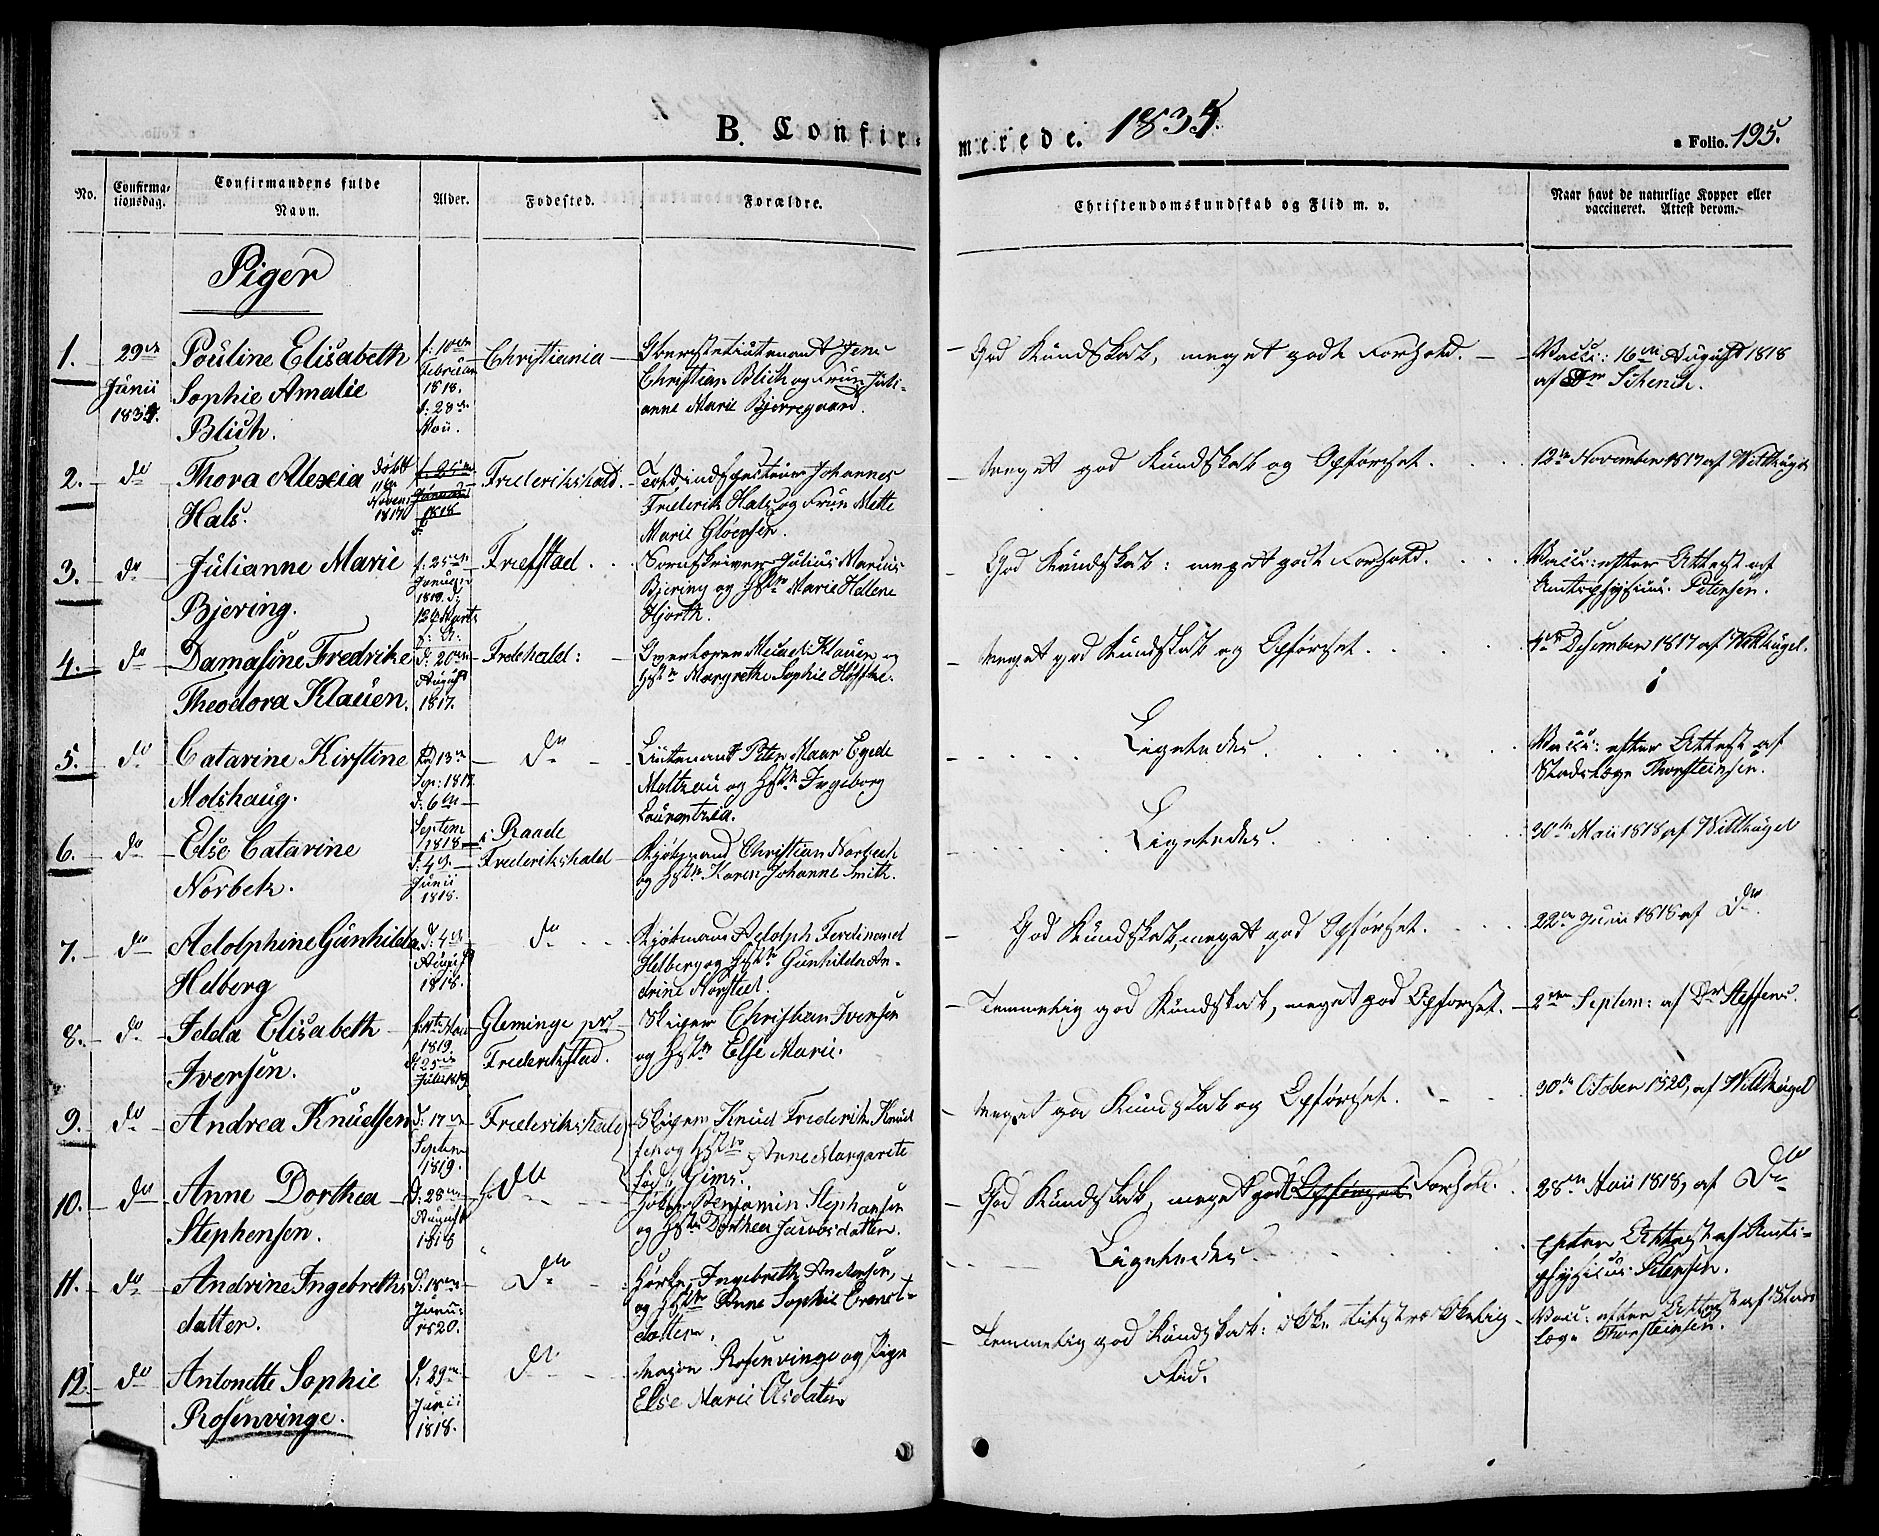 B. Confirmerede. 1834.
a Folio. 195.
No.
Confirmationsdag.
Confirmandens fulde Navn.
Alder.
Fodested.
Forældre.
Christendomskundskab og Flid m. v.
Naar havt de naturlige Kopper eller vaccineret. Attest derom.
Piger
1. 29de Junii 1834.
Pouline Elisabeth
Sophie Amalie
Blich.
f: 10de Februar 1818. d: 28de Maii.
Christiania
Oberstlieutenant Jens
Christian Blich og Frue Juli-
anne Marie Bjerregaard.
God Kundskab, meget godt Forhold.
Vacci: 16de August 1818
af Dr Schenck.
2. do
Thora Alexia
Hals.
døbt 11te Novem: 1817
Frederikshald.
Toldinspecteur Johannes
Frederik Hals og Frue Mette
Marie Gløersen.
Meget god Kundskab og Opførsel.
12te November 1817 af Wittkugel
3. do
Julianne Marie
Bjering.
f: 25de Januar 1819. d: 12te Marts
Fredstad.
Sorenskriver Julius Marius
Bjering og Hst: Marie Hellene
Hjorth.
God Kundskab: meget godt Forhold.
Vacci: efter Attest af
Amtsphysicus Petersen.
4. do
Damasine Fredrike
Theodora Klauen.
d: 20de August 1817.
Fredrhald:
Klauen og
Hst: Margrethe Sophie
Meget god Kundskab og Opførsel.
4de Desember 1817 af Wittkugel.
5. do
Catarine Kirstine
Molshaug.
13de Sep: 1817
do
Lieutenant Peter Maar Egede
Moltzau og Hst: Ingeborg
Laurentzia.
Ligeledes.
Vacci: efter Attest af
Stadslæge Thorsteinsen.
6. do
Else Catarine
Norbek.
d: 6te Septem 1818
Raade
Frederikshald
Kjøbmand Christian Norbech
og Hst: Karen Johanne Smith.
Ligeledes.
30te Maii 1818, af Wittkugel
7. do
Adolphine Gunhilda
Helberg
d: 4de August 1818.
do
Kjøbmand Adolph Ferdinand
Helberg og Hst: Gunhilde An-
drine Norsted.
God Kundskab, meget god Opførsel.
22de Junii 1818 af do.
8. do
Jelda Elisabeth
Iversen.
1819 d: 25de Julii 1819
Gleminge pr
Frederikstad.
Skiper Christian Iversen
og Hst: Else Marie.
Temmelig god Kundskab, meget god Opførsel.
2den Septem: af Dr Steffens.
9. do
Andrea Knudsen
d: 17de Septem 1819.
Frederikshald
Skiper Knud Frederik Knud
sen og Hst: Anne Margarete
fød Gims.
Meget god Kundskab og Opførsel.
30te October 1820, af Wittkugel
10. do
Anne Dorthea
Stephensen.
d: 28de August 1818
do
Benjamin Stephansen
og Hst: Dorthea Jacobsdatter.
God Kundskab, meget godt Opførsel Forhold.
28de Maii 1818, af do
11. do
Andrine Ingebreths
datter.
d: 18de Janu: 1820.
do
Ingebreth Andersen,
og Hst: Anne Sophie Ernst-
datter.
Ligeledes.
Efter Attest af Amts-
physicus Petersen.
12. do
Antonette Sophie
Rosenvinge.
d: 29de Junii 1818.
do
Major Rosenvinge og Pige
Else Marie Olsdatter
Temmelig god Kundskab: ikke tilstrækkelig
Flid.
Vacci: efter Attest af Stads
læge Thorsteinsen.